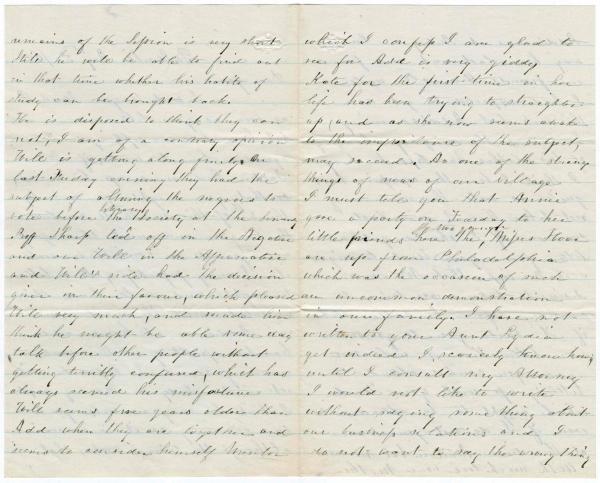 remains of the Session is very short
Still he will be able to find out
in that time whether his habits of
study can be brought back.
He is disposed to think they can
not, I am of a contrary opinion
Will is getting along finely. On
last Friday evening they had the
subject of allowing the negroes to
vote before the Literary Society at the
Proff Sharp led off in the Negative
and our Will in the Affirmative
and Will's side had the decision
given in their favour, which pleased
Will very much, and made him
think he might be able some day
talk before other people without
getting terribly confused, which has
always seemed his misfortune
Will seems five years older than
Add when they are together and
seems to consider himself Mentor
which I confess I am glad to
see for Add is very giddy
Kate for the first time in her
life has been trying to straighten
up, and as she now seems awake
to the importance of the subject,
may succeed. As one of the strange
things of news of our village
I must tell you that Annie
gave a party on Tuesday to her
little friends here. The Misses
are up from Philadelphia
which was the occasion of such
an uncommon demonstration
in our family. I have not
written to your Aunt Lydia
yet indeed I scarcely know how,
until I consult my Attorney
I would not like to write
without saying something about
our business relations and I
do not want to say the wrong thing